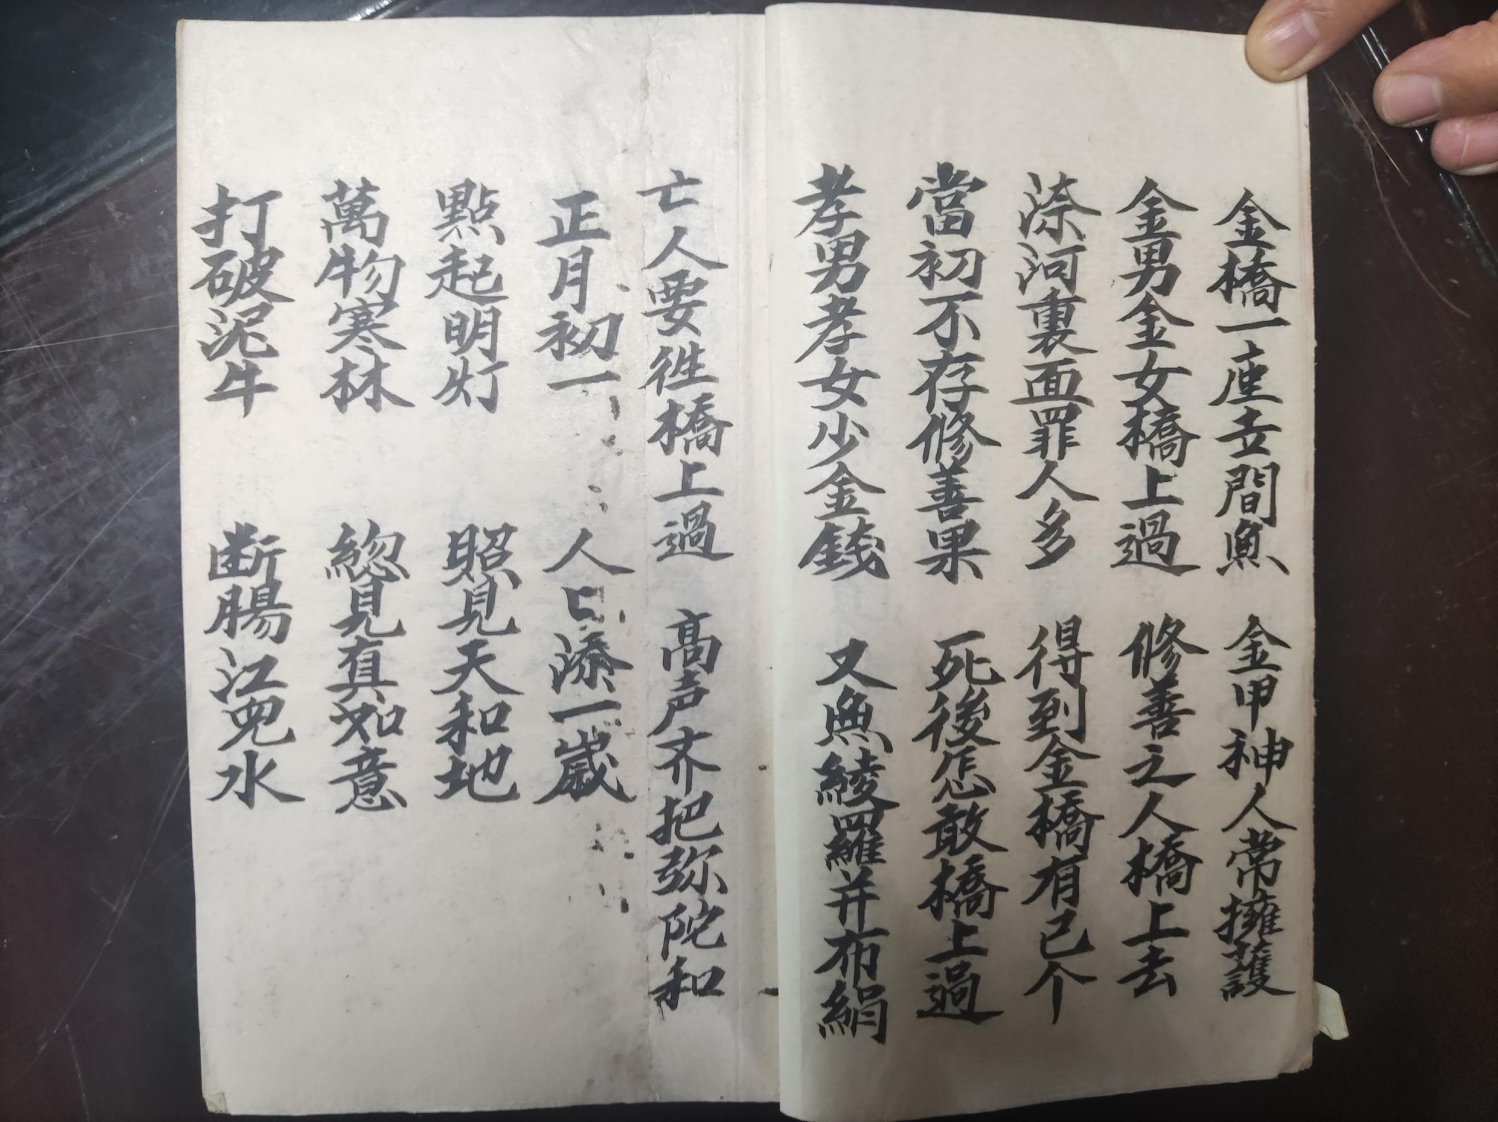 金橋一座㐀間魚　金甲神人常擁護
金男金女橋上過　修善之人橋上去
渿河裏面罪人多　得到金橋有己个
當初不存修善果　死後怎敢橋上過
孝男孝女少金錢　又魚綾羅并布絹
亡人要徃橋上過　高声齐把弥陀和
正月初一　人口添一歲
點起明灯　照見天和地
萬物寒林　緫見真如意
打破泥牛　断腸江児水